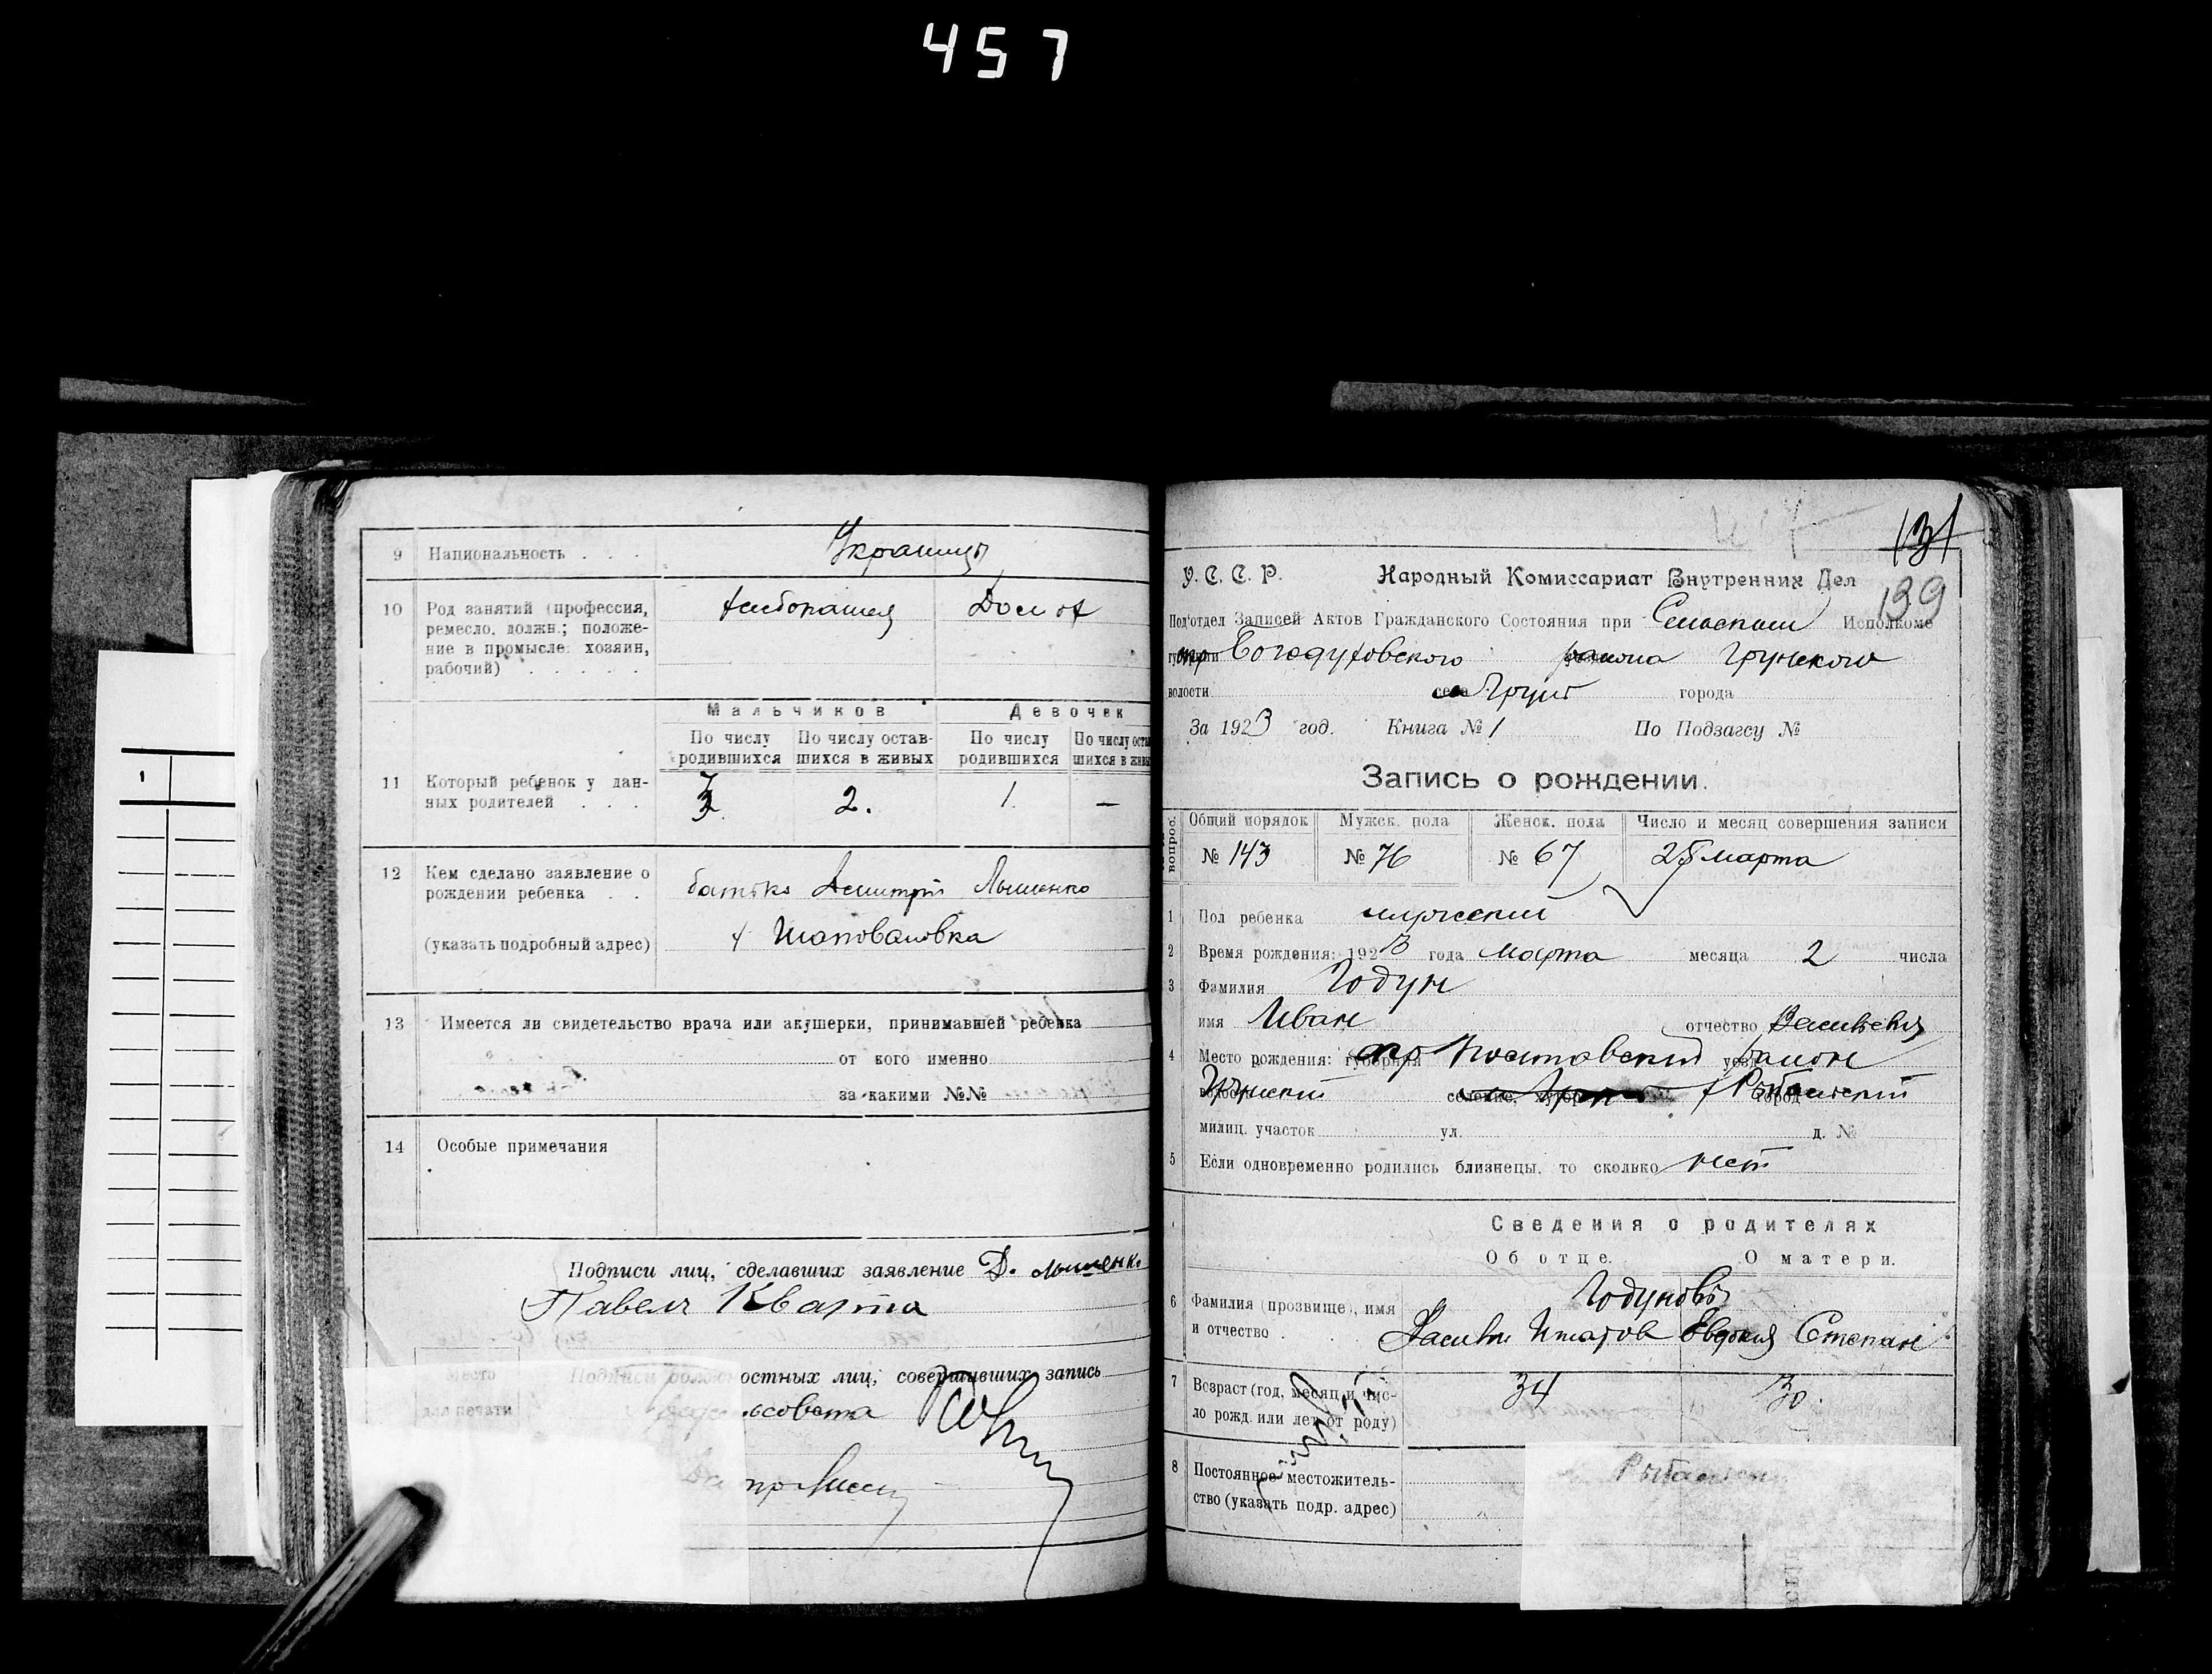 457
9 Национальность . . . Украинцы
10 Род занятий (профессия, ремесло, должн.; положение в промысле: хозяин, рабочий) . . . . .
Мальчиков Девочек
По числу родившихся По числу оставшихся в живых По числу родившихся По числу оста шихся в жив
11 Который ребенок у данных родителей . . . 3 2. 1. —
12 Кем сделано заявление о рождении ребенка . . батько Дмитрий Лышенко
(указать подробный адрес) х Шаповаловка
13 Имеется ли свидетельство врача или акушерки, принимавшей ребенка
от кого именно
за какими №№
14 Особые примечания
Подписи лиц, сделавших заявление Д. Лышенко
Павелъ Кварта
Место для печати
Подписи должностных лиц, совершивших запись
131
139
У. С. С. Р. Народный Комиссариат Внутренних Дел
Подотдел Записей Актов Гражданского Состояния при Исполкоме
окр Богодуховского района Грунского
волости села Грунь города
За 1923 год. Книга № 1 По Подзагсу №
Запись о рождении.
вопрос. Общий порядок Мужск. пола Женск. пола Число и месяц совершения записи
№ 143 № 76 № 67 25 марта
1 Пол ребенка мужеский
2 Время рождения: 1923 года марта месяца 2 числа
3 Фамилия Годун
имя Иван отчество Васильевич
4 Место рождения: губерния окр уезд район
волость Грунский селение, хутор город
милиц. участок ул. д. №
5 Если одновременно родились близнецы, то сколько нет
Сведения о родителях
Об отце. О матери.
6 Фамилия (прозвище), имя и отчество . . Годуновы
Евдокия Степан
7 Возраст (год, месяц и число рожд. или лет от роду) 34 30.
8 Постоянное местожительство (указать подр. адрес)